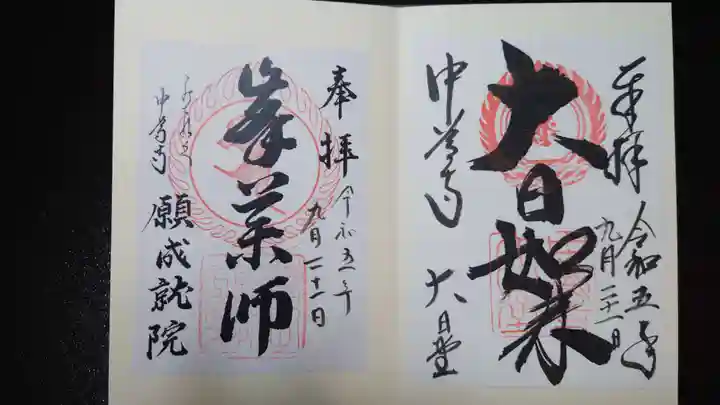 奉拝
令和五年
九月二十一日
大日如来
中尊寺
大日堂
奉拝
令和五年
九月二十一日
峯薬師
中尊寺
願成就院